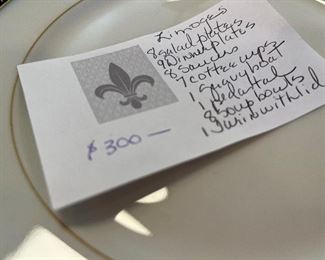 Limoges
8 salad plates
9 Dinner plates
8 saucers
7 coffee cups
1 gravy boat
1
8 soup bowls
1 with lid
$300 —